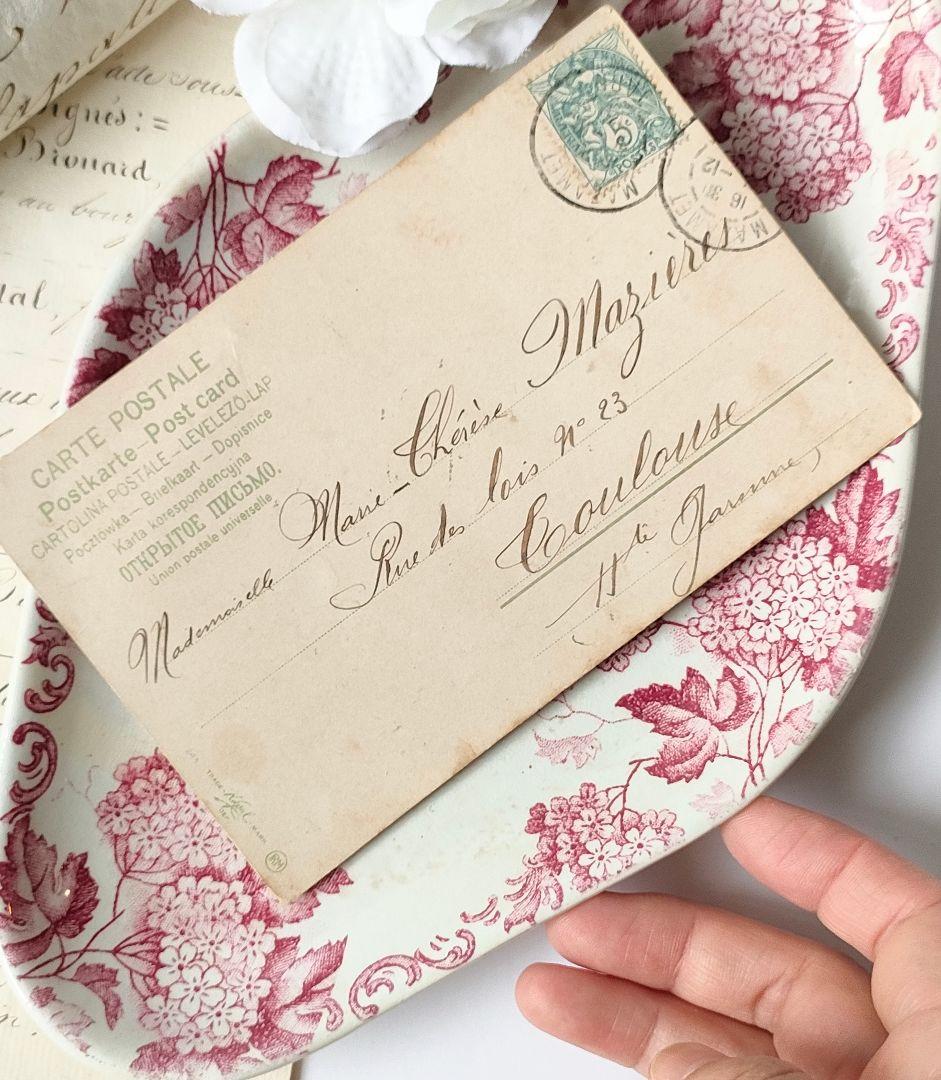 signés:=
Brouard,
au bou
CARTE POSTALE
Postkarte – Post card
CARTOLINA POSTALE – LEVELEZÖ-LAP
Pocztówka – Briefkaart – Dopisnice
Karta korespondencyjna
ОТКРЫТОЕ ПИСЬМО.
Union postale universelle
5
MAZAMET
16 31
-12
Mademoiselle
Marie-Thérèse Mazières
Rue des lois N° 23
Toulouse
Hte Garonne,
TRADE MARK